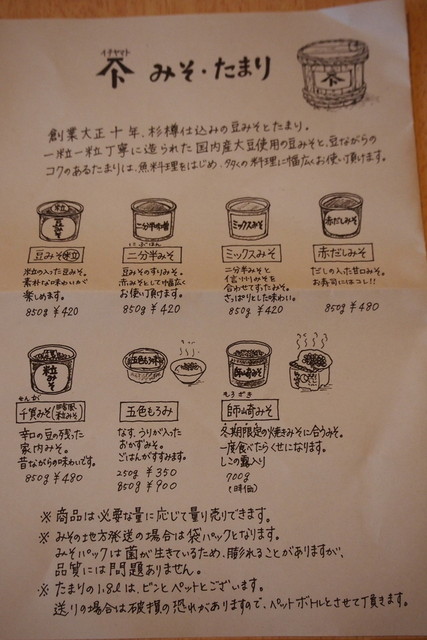 イチヤマト
みそ・たまり
創業大正十年、杉樽仕込みの豆みそとたまり。
一粒一粒丁寧に造られた国内産大豆使用の豆みそと、豆ながらの
コクのあるたまりは、魚料理をはじめ、多くの料理に幅広くお使い頂けます。
豆みそ
二分半みそ
ミックスみそ
赤だしみそ
粒の入った豆みそ。
素朴な味わいが
楽しめます。
850g ¥420
豆みそのすりみそ。
赤みそとして幅広く
お使い頂けます。
850g ¥420
二分半みそと
信州みそを
合わせてすったみそ。
さっぱりとした味わい。
850g ¥420
だしの入った甘口みそ。
お寿司にはコレ!!
850g ¥480
せんが
千賀みそ
五色もろみ
もろざき
師崎みそ
辛口の豆の残った
家内みそ。
昔ながらの味わいです。
850g ¥480
なす、うりが入った
おかずみそ。
ごはんがすすみます。
250g ¥350
850g ¥900
冬期限定の焼きみそに合うみそ。
一度食べたらくせになります。
しこの露入り
700g
(時価)
※ 商品は必要な量に応じて量り売りできます。
※ みその地方発送の場合は袋パックとなります。
みそパックは菌が生きているため、膨れることがありますが、
品質には問題ありません。
※ たまりの1.8ℓは、ビンとペットとございます。
送りの場合は破損の恐れがありますので、ペットボトルとさせて頂きます。